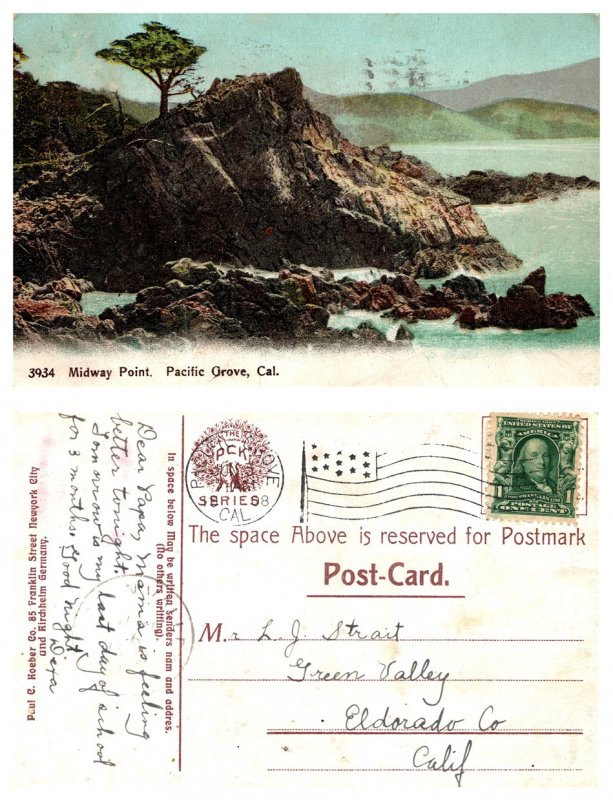 3934 Midway Point. Pacific Grove, Cal.
Paul C. Koeber Co. 85 Franklin Street Newyork City
and Kirchheim Germany.
Dear Papa, Mama is feeling
better tonight.
Tomorrow is my last day of school
for 3 months. Good Night
Vera
In space below May be written senders nam and addres.
(No others writting).
THE
PCK
SERIES
PACIFIC GROVE
JUN
8
CAL
UNITED STATES OF
AMERICA
1 1
FRANKLIN
POSTAGE
ONE CENT
The space Above is reserved for Postmark
Post-Card.
Mr L. J. Strait
Green Valley
Eldorado Co
Calif